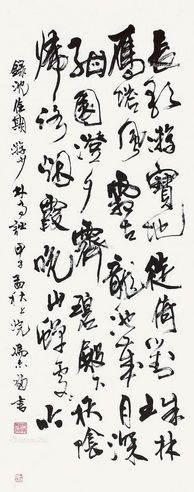 長歌游寶地徙倚對珠林
鴈塔風霜古龍池歲月深
紺園澄夕霽碧殿下秋陰
歸路烟霞晚山蟬處々吟
錄沈佺期游少林寺詩甲子孟秋上浣馮亦吾書